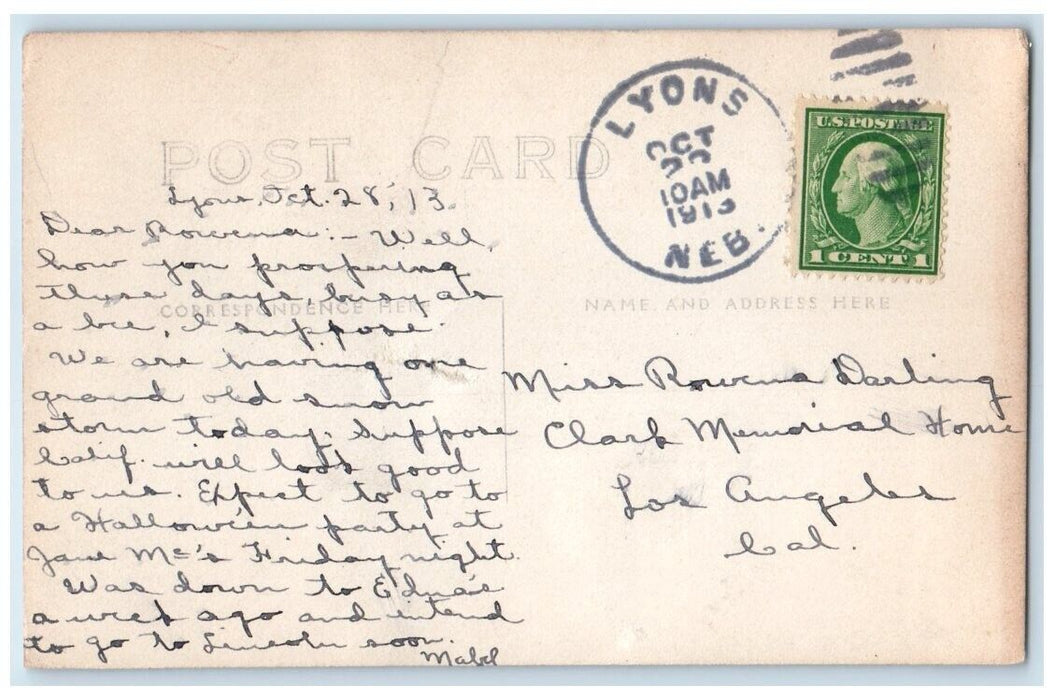 POST CARD
LYONS
OCT
10AM
1913
NEB.
U.S. POSTAGE
1 CENT 1
Lyons, Oct. 28, '13.
Dear Rowena:- Well,
how you prospering
these days, busy as
CORRESPONDENCE HERE
a bee, I suppose.
We are having one
grand old snow
storm today. Suppose
Calif. will look good
to us. Expect to go to
a Hallowe'en party at
Jane Mc's Friday night.
Was down to Edna's
a week ago and intend
to go to Lincoln soon.
Mabel
NAME AND ADDRESS HERE
Miss Rowena Darling
Clark Memorial Home
Los Angeles
Cal.